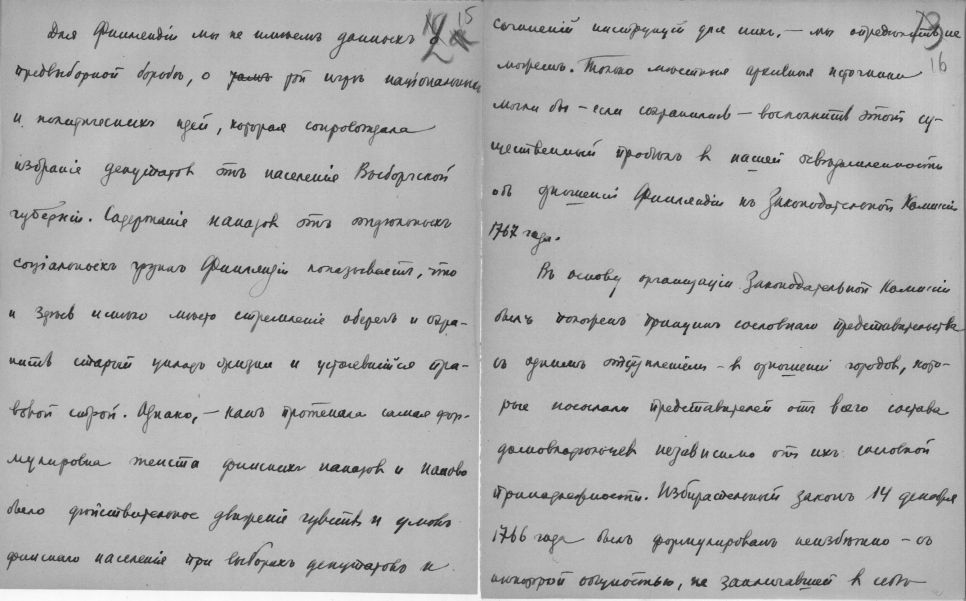 15
Для Финляндіи мы не имѣемъ данныхъ о
предвыборной борьбѣ, о той игрѣ національныхъ
и политическихъ идей, которая сопровождала
избраніе депутатовъ отъ населенія Выборгской
губерніи. Содержаніе наказовъ отъ отдѣльныхъ
соціальныхъ группъ Финляндіи показываетъ, что
и здѣсь имѣло мѣсто стремленіе оберечь и охра-
нить старый укладъ жизни и устоявшійся пра-
вовой строй. Однако, – какъ протекала самая фор-
мулировка текста финскихъ наказовъ и каково
было дѣйствительное движеніе чувствъ и умовъ
финскаго населенія при выборахъ депутатовъ и
16
сочиненій инструкцій для нихъ, – мы опредѣлить не
можемъ. Только мѣстные архивные источники
могли бы – если сохранились – восполнить этотъ су-
щественный пробѣлъ въ нашей освѣдомленности
объ отношеніи Финляндіи къ Законодательной Комиссіи
1767 года.
Въ основу организаціи Законодательной Комиссіи
былъ положенъ принципъ сословнаго представительства
съ однимъ отступленіемъ – в отношеніи городовъ, кото-
рые посылали представителей отъ всего состава
домовладѣльцевъ независимо отъ ихъ сословной
принадлежности. Избирательный законъ 14 декабря
1766 года былъ формулированъ неизбѣжно – съ
нѣкоторой общностью, не заключавшей в себѣ